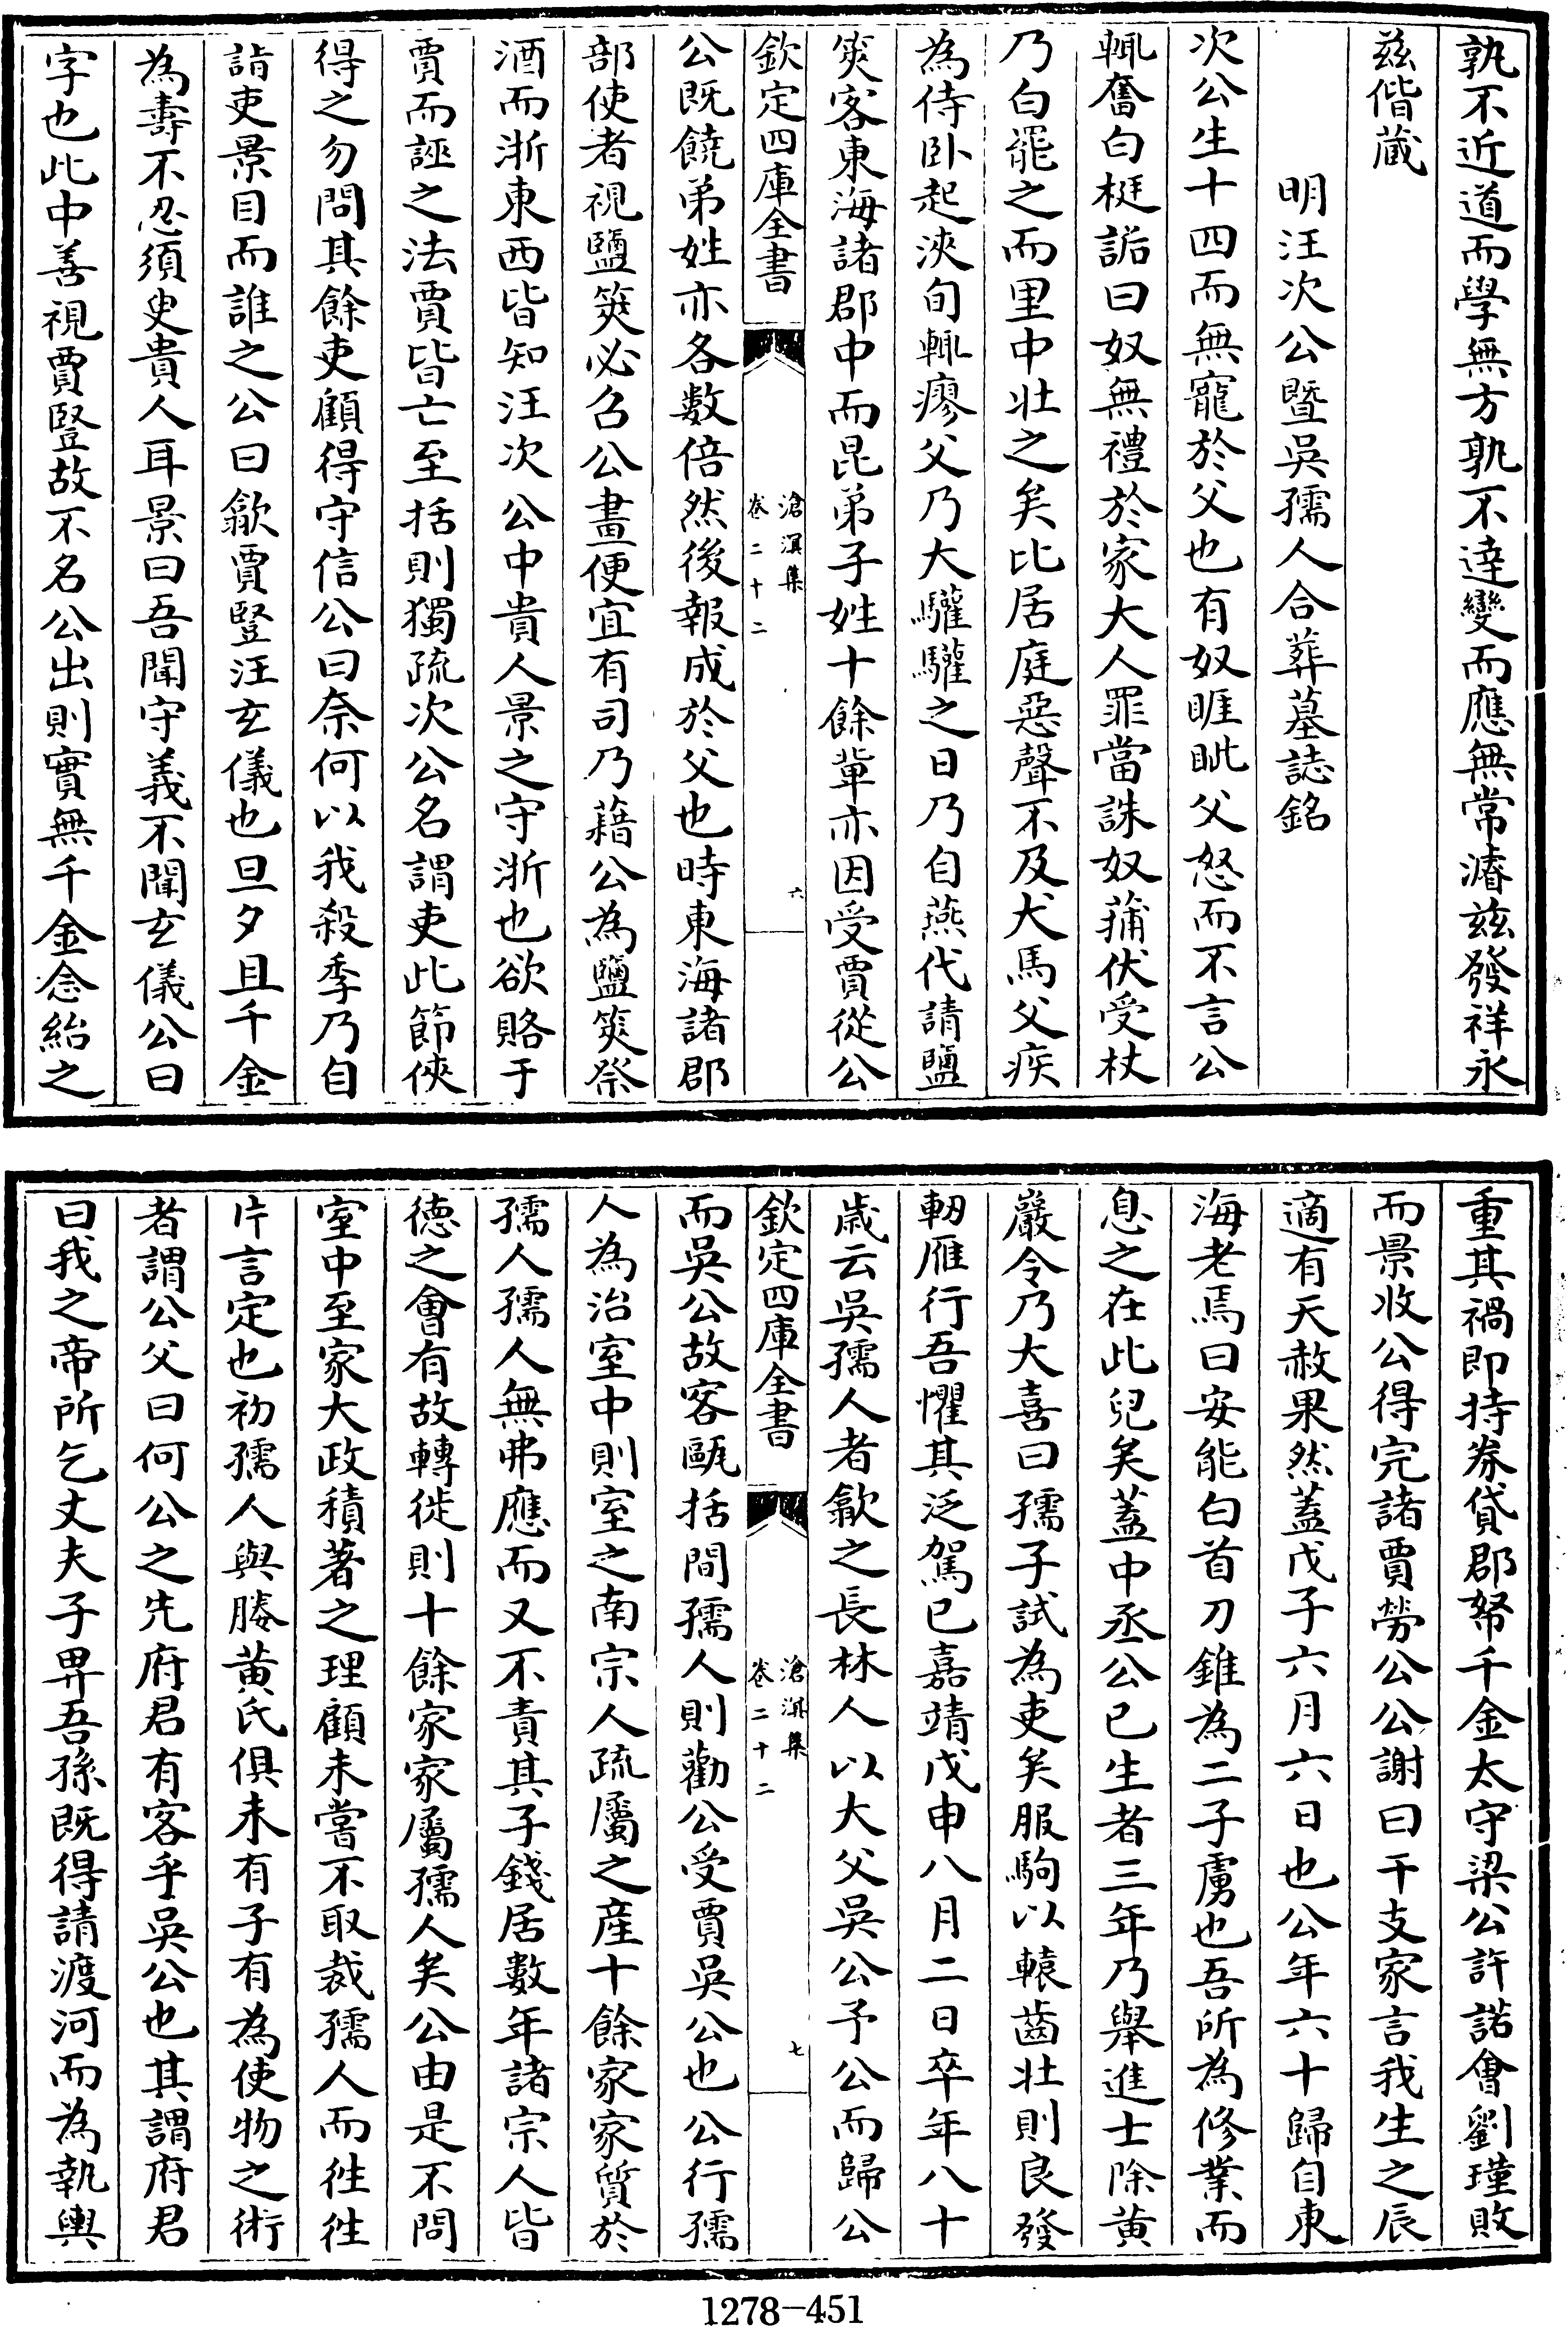 孰不近道而學無方孰不達變而應無常濬兹發祥永
兹偕藏
明汪次公暨吳孺人合葬墓誌銘
次公生十四而無寵於父也有奴睚眦父怒而不言公
輒奮白梃詬曰奴無禮於家大人罪當誅奴蒱伏受杖
乃白罷之而里中壮之矣比居庭惡聲不及犬馬父疾
為侍卧起浹旬輒瘳父乃大驩驩之日乃自燕代請鹽
筴客東海諸郡中而昆弟子姓十餘軰亦因受賈從公
欽定四庫全書
滄溟集
卷二十二
六
公既饒弟姓亦各數倍然後報成於父也時東海諸郡
部使者視鹽筴必召公畫便宜有司乃藉公為鹽筴祭
酒而浙東西皆知汪次公中貴人景之守浙也欲賂于
賈而誣之法賈皆亡至括則獨疏次公名謂吏此節俠
得之勿問其餘吏顧得守信公曰奈何以我殺季乃自
詣吏景目而誰之公曰歙賈豎汪玄儀也旦夕且千金
為壽不忍須臾貴人耳景曰吾聞守義不聞玄儀公曰
字也此中善視賈豎故不名公出則實無千金念紿之
重其禍即持券貸郡帑千金太守梁公許諾會劉瑾敗
而景收公得完諸賈勞公公謝曰干支家言我生之辰
適有天赦果然蓋戊子六月六日也公年六十歸自東
海老焉曰安能白首刀錐為二子虜也吾所為修業而
息之在此兒矣蓋中丞公已生者三年乃舉進士除黄
巖令乃大喜曰孺子試為吏矣服駒以轅齒壮則良發
軔雁行吾懼其泛駕已嘉靖戊申八月二日卒年八十
歲云吳孺人者歙之長林人以大父吳公予公而歸公
欽定四庫全書
滄溟集
卷二十二
七
而吳公故客甌括間孺人則勸公受賈吳公也公行孺
人為治室中則室之南宗人疏屬之産十餘家家質於
孺人孺人無弗應而又不責其子錢居數年諸宗人皆
德之會有故轉徙則十餘家家屬孺人矣公由是不問
室中至家大政積著之理顧未嘗不取裁孺人而徃徃
片言定也初孺人與媵黄氏俱未有子有為使物之術
者謂公父曰何公之先府君有客乎吳公也其謂府君
曰我之帝所乞丈夫子畀吾孫既得請渡河而為執輿
1278-451